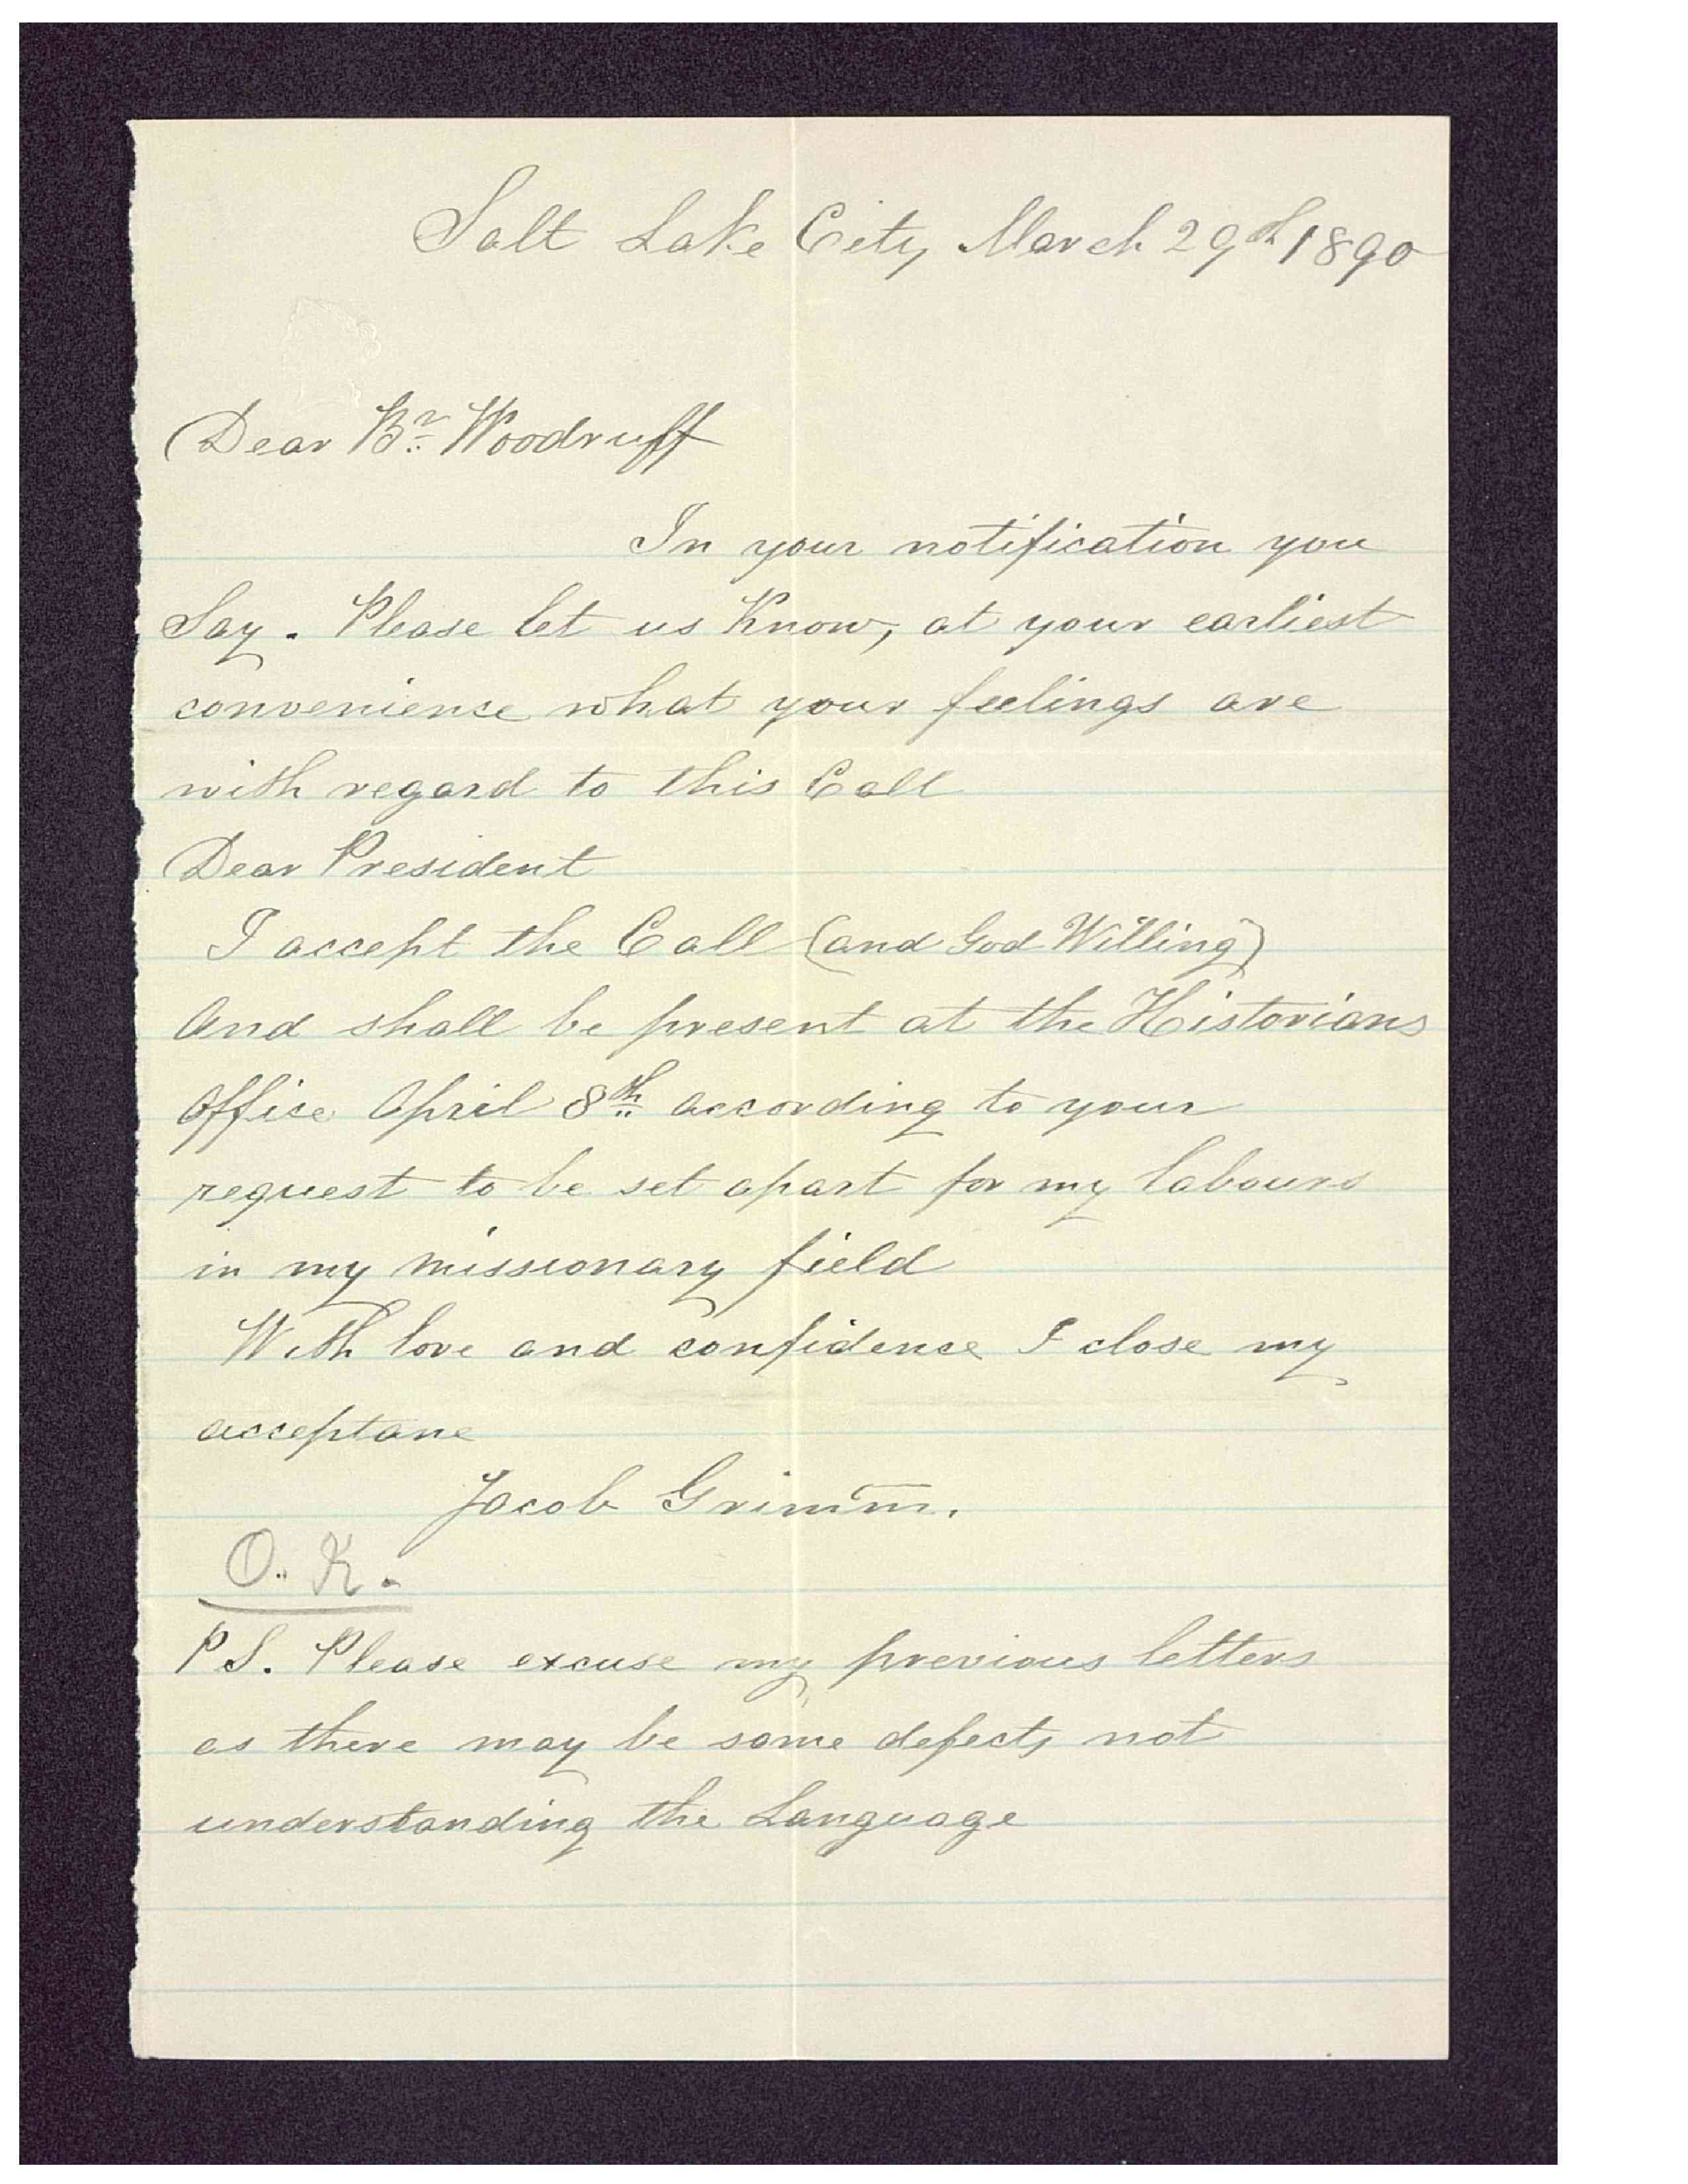 Salt Lake City, March 29th 1890
Dear Br. Woodruff
In your notification you
Say. Please let us Know, at your earliest
convenience what your feelings are
with regard to this Call
Dear President
I accept the Call (and God Willing)
And shall be present at the Historians
Office April 8th according to your
request to be set apart for my labours
in my missionary field
With love and confidence I close my
acceptane
Jacob Grimm.
O. K.
P S. Please excuse my previous letters
as there may be some defects, not
understanding the Language